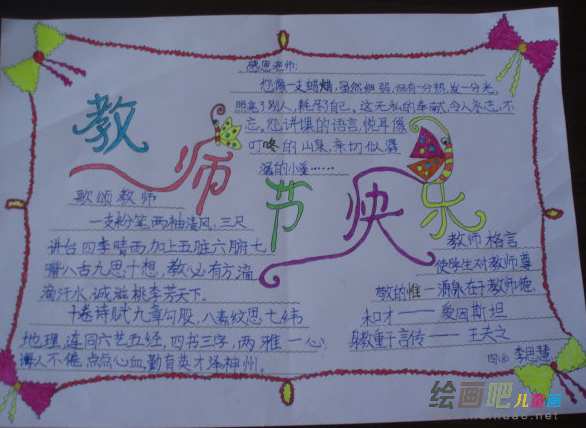 感恩老师:
您像一支蜡烛,虽然细弱,但有一分热,发一分光,
照亮了别人,耗尽了自己。这无私的奉献,令人永志不
忘。您讲课的语言,悦耳像
叮咚的山泉,亲切似潺
潺的小溪……
教师节快乐
歌颂教师
一支粉笔,两袖清风,三尺
讲台四季晴雨,加上五脏六腑七
嘴八舌九思十想,教必有方,滴
滴汗水,诚滋桃李芳天下。
十卷诗赋九章勾股,八索文思七纬
地理,连同六艺五经,四书三字,两雅一心,
诲人不倦,点点心血,勤育英才泽神州。
教师格言
使学生对教师尊
敬的惟一源泉在于教师德
和才——爱因斯坦
身教重于言传——王夫之
四
绘画吧儿童画